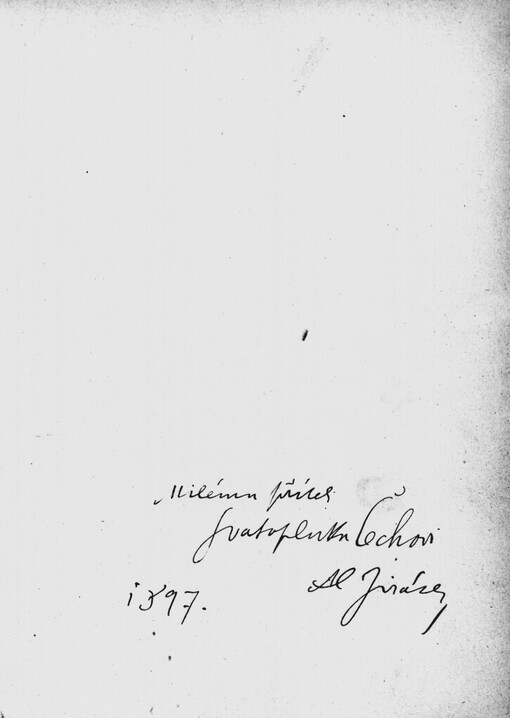 Milému příteli
Svatopluku Čechovi
Al Jirásek
1897.